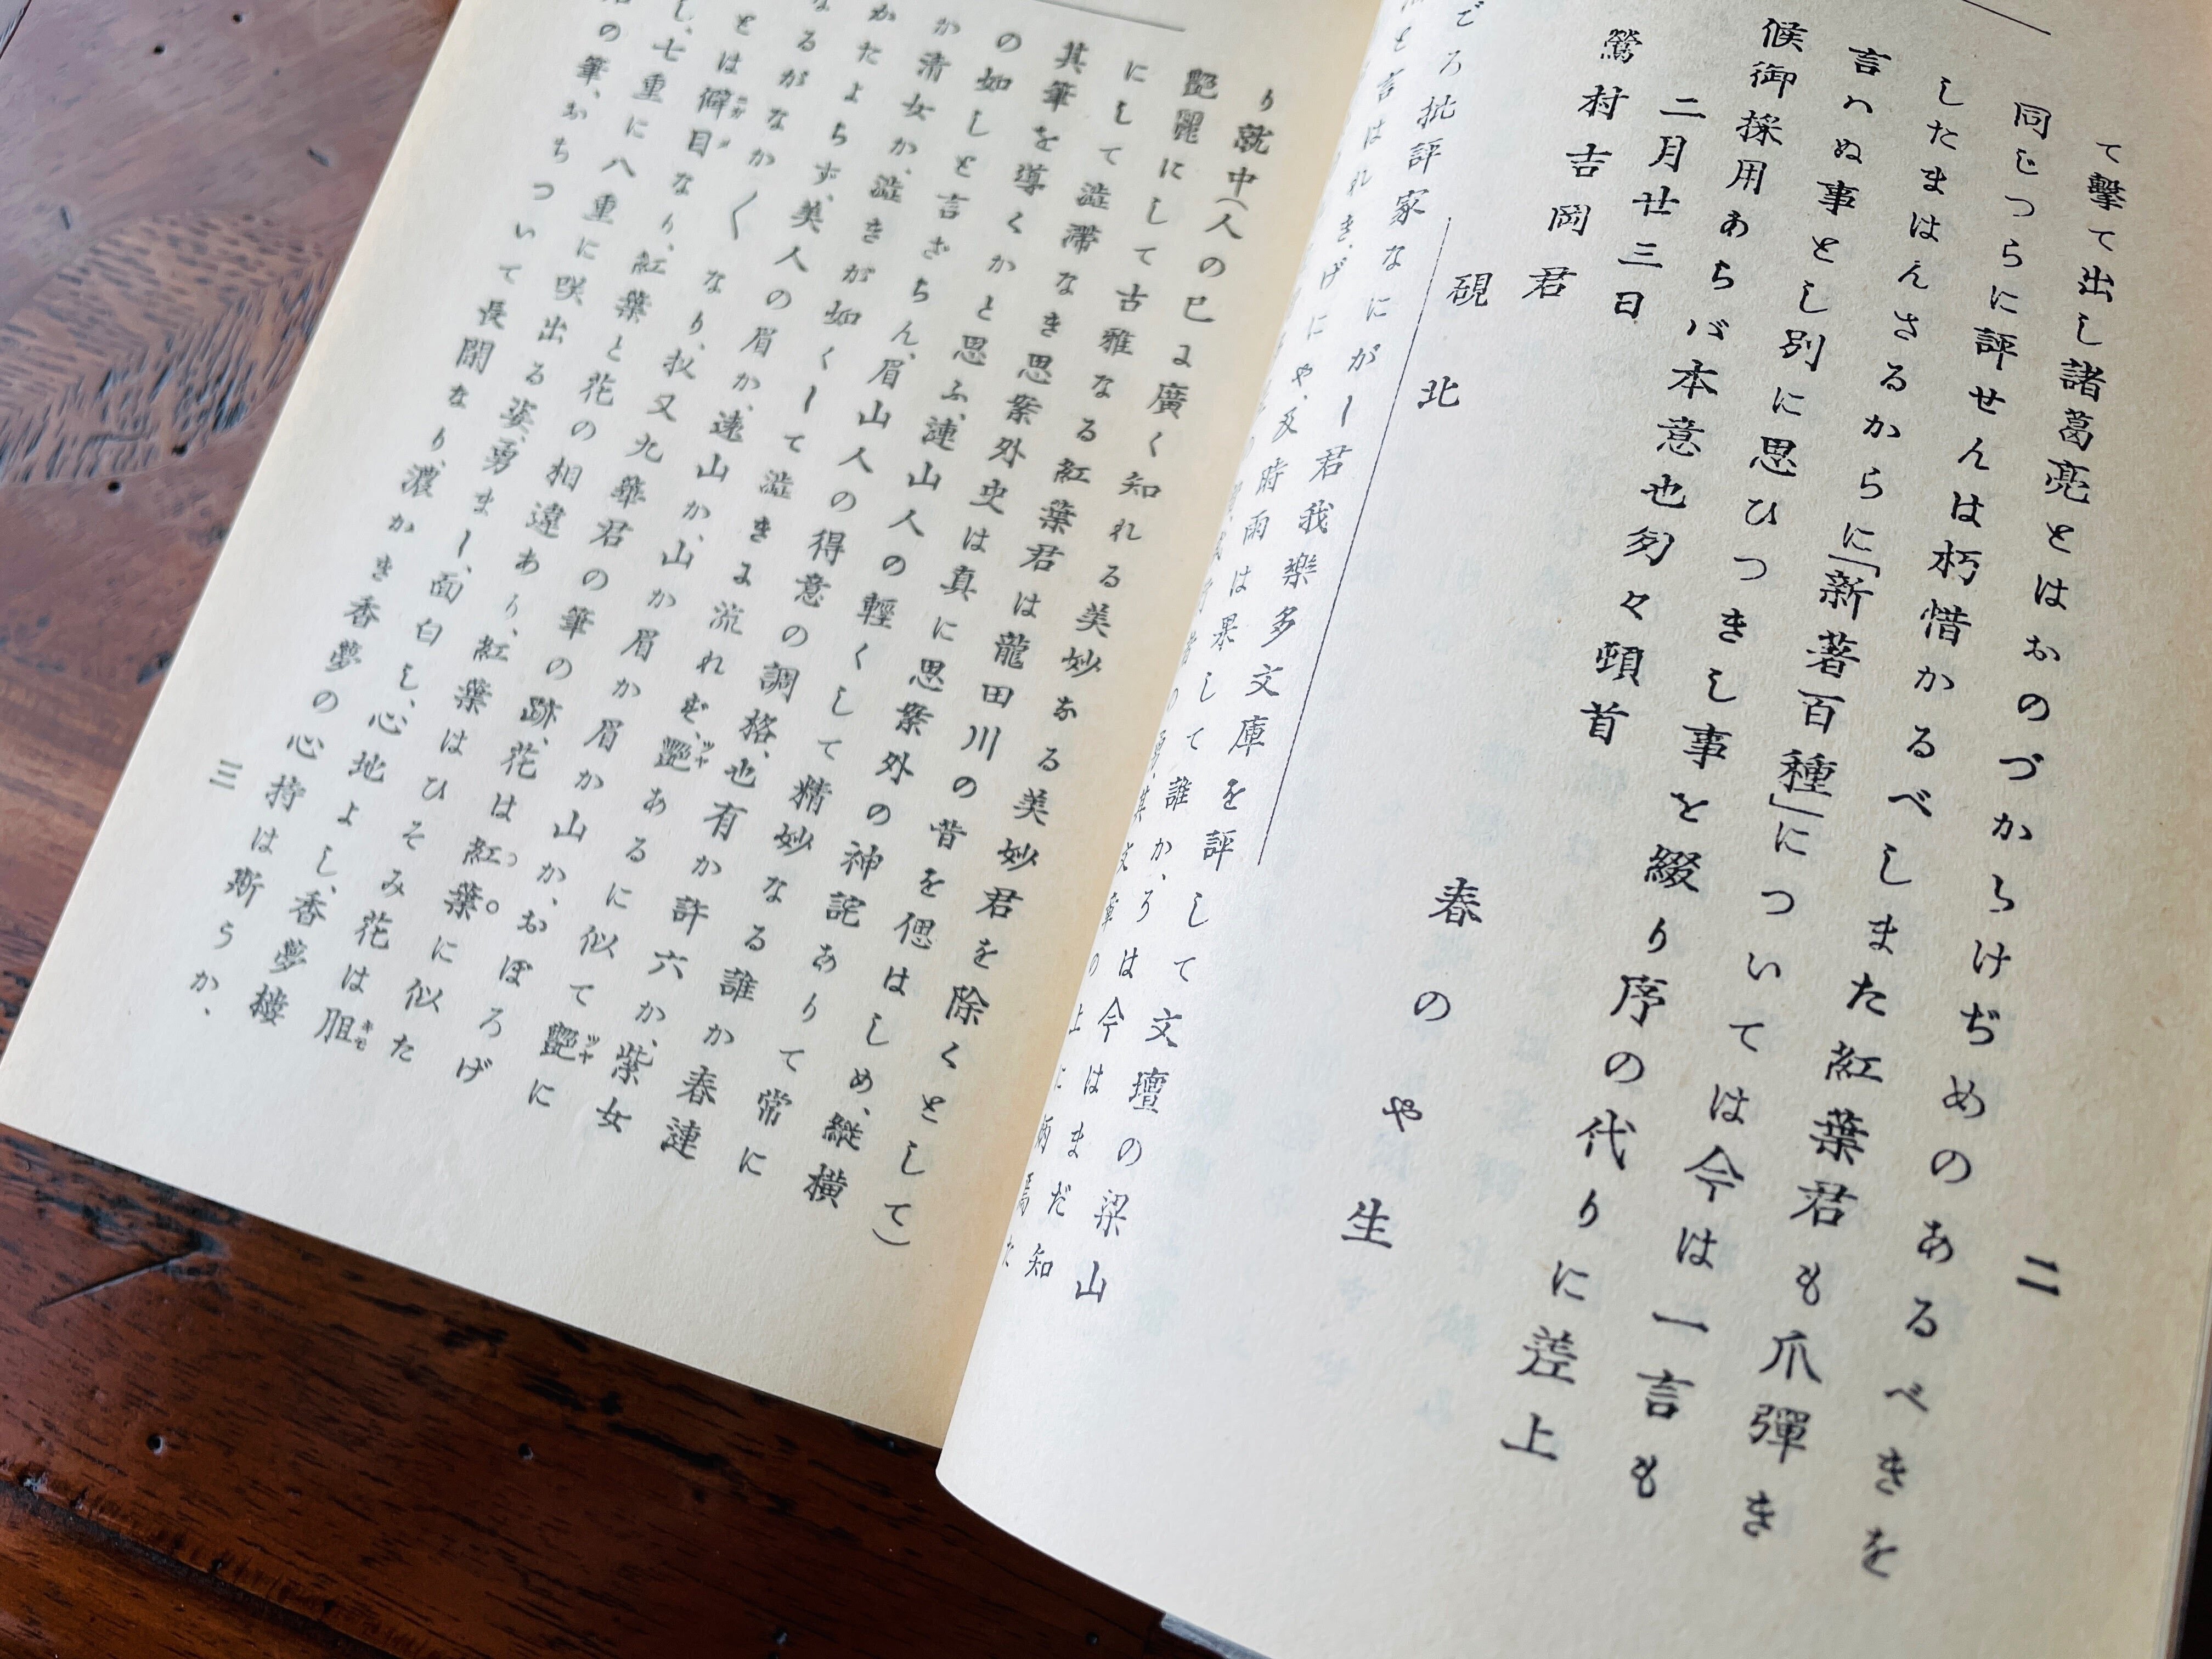 二
て擊て出し諸葛亮とはおのづからけぢめのあるべきを
同じつらに評せんは朽惜かるべしまた紅葉君も爪彈き
したまはんさるからに「新著百種」については今は一言も
言ハぬ事とし別に思ひつきし事を綴り序の代りに差上
候御採用あらバ本意也匆々頓首
二月廿三日 春のや生
鶯村吉岡君
硯北
ごろ批評家なにがし君我樂多文庫を評して文壇の梁山
と言はれき、げにや、及時雨は果して誰か、そは今はまだ知
り就中(人の已に廣く知れる美妙なる美妙君を除くとして)
艷麗にして古雅なる紅葉君は龍田川の昔を偲はしめ、縱橫
にして澁滯なき思案外史は真に思案外の神詫ありて常に
其筆を導くかと思ふ、漣山人の輕くして精妙なる誰か春漣
の如しと言ざらん、眉山人の得意の調格、也有か許六か、紫女
か清女か、澁きが如くして澁きに流れず、艷あるに似て艷に
かたよらず、美人の眉か、遠山か、山か眉か眉か山か、おぼろげ
なるがなか〱なり、扨又九華君の筆の跡、花は紅葉に似た
とは僻目なり、紅葉と花の相違あり、紅葉はひそみ花は
し、七重に八重に咲出る姿、勇まし、面白し、心地よし、香夢樓
の筆、おちついて長閑なり、濃かき香夢の心持は斯うか、
三